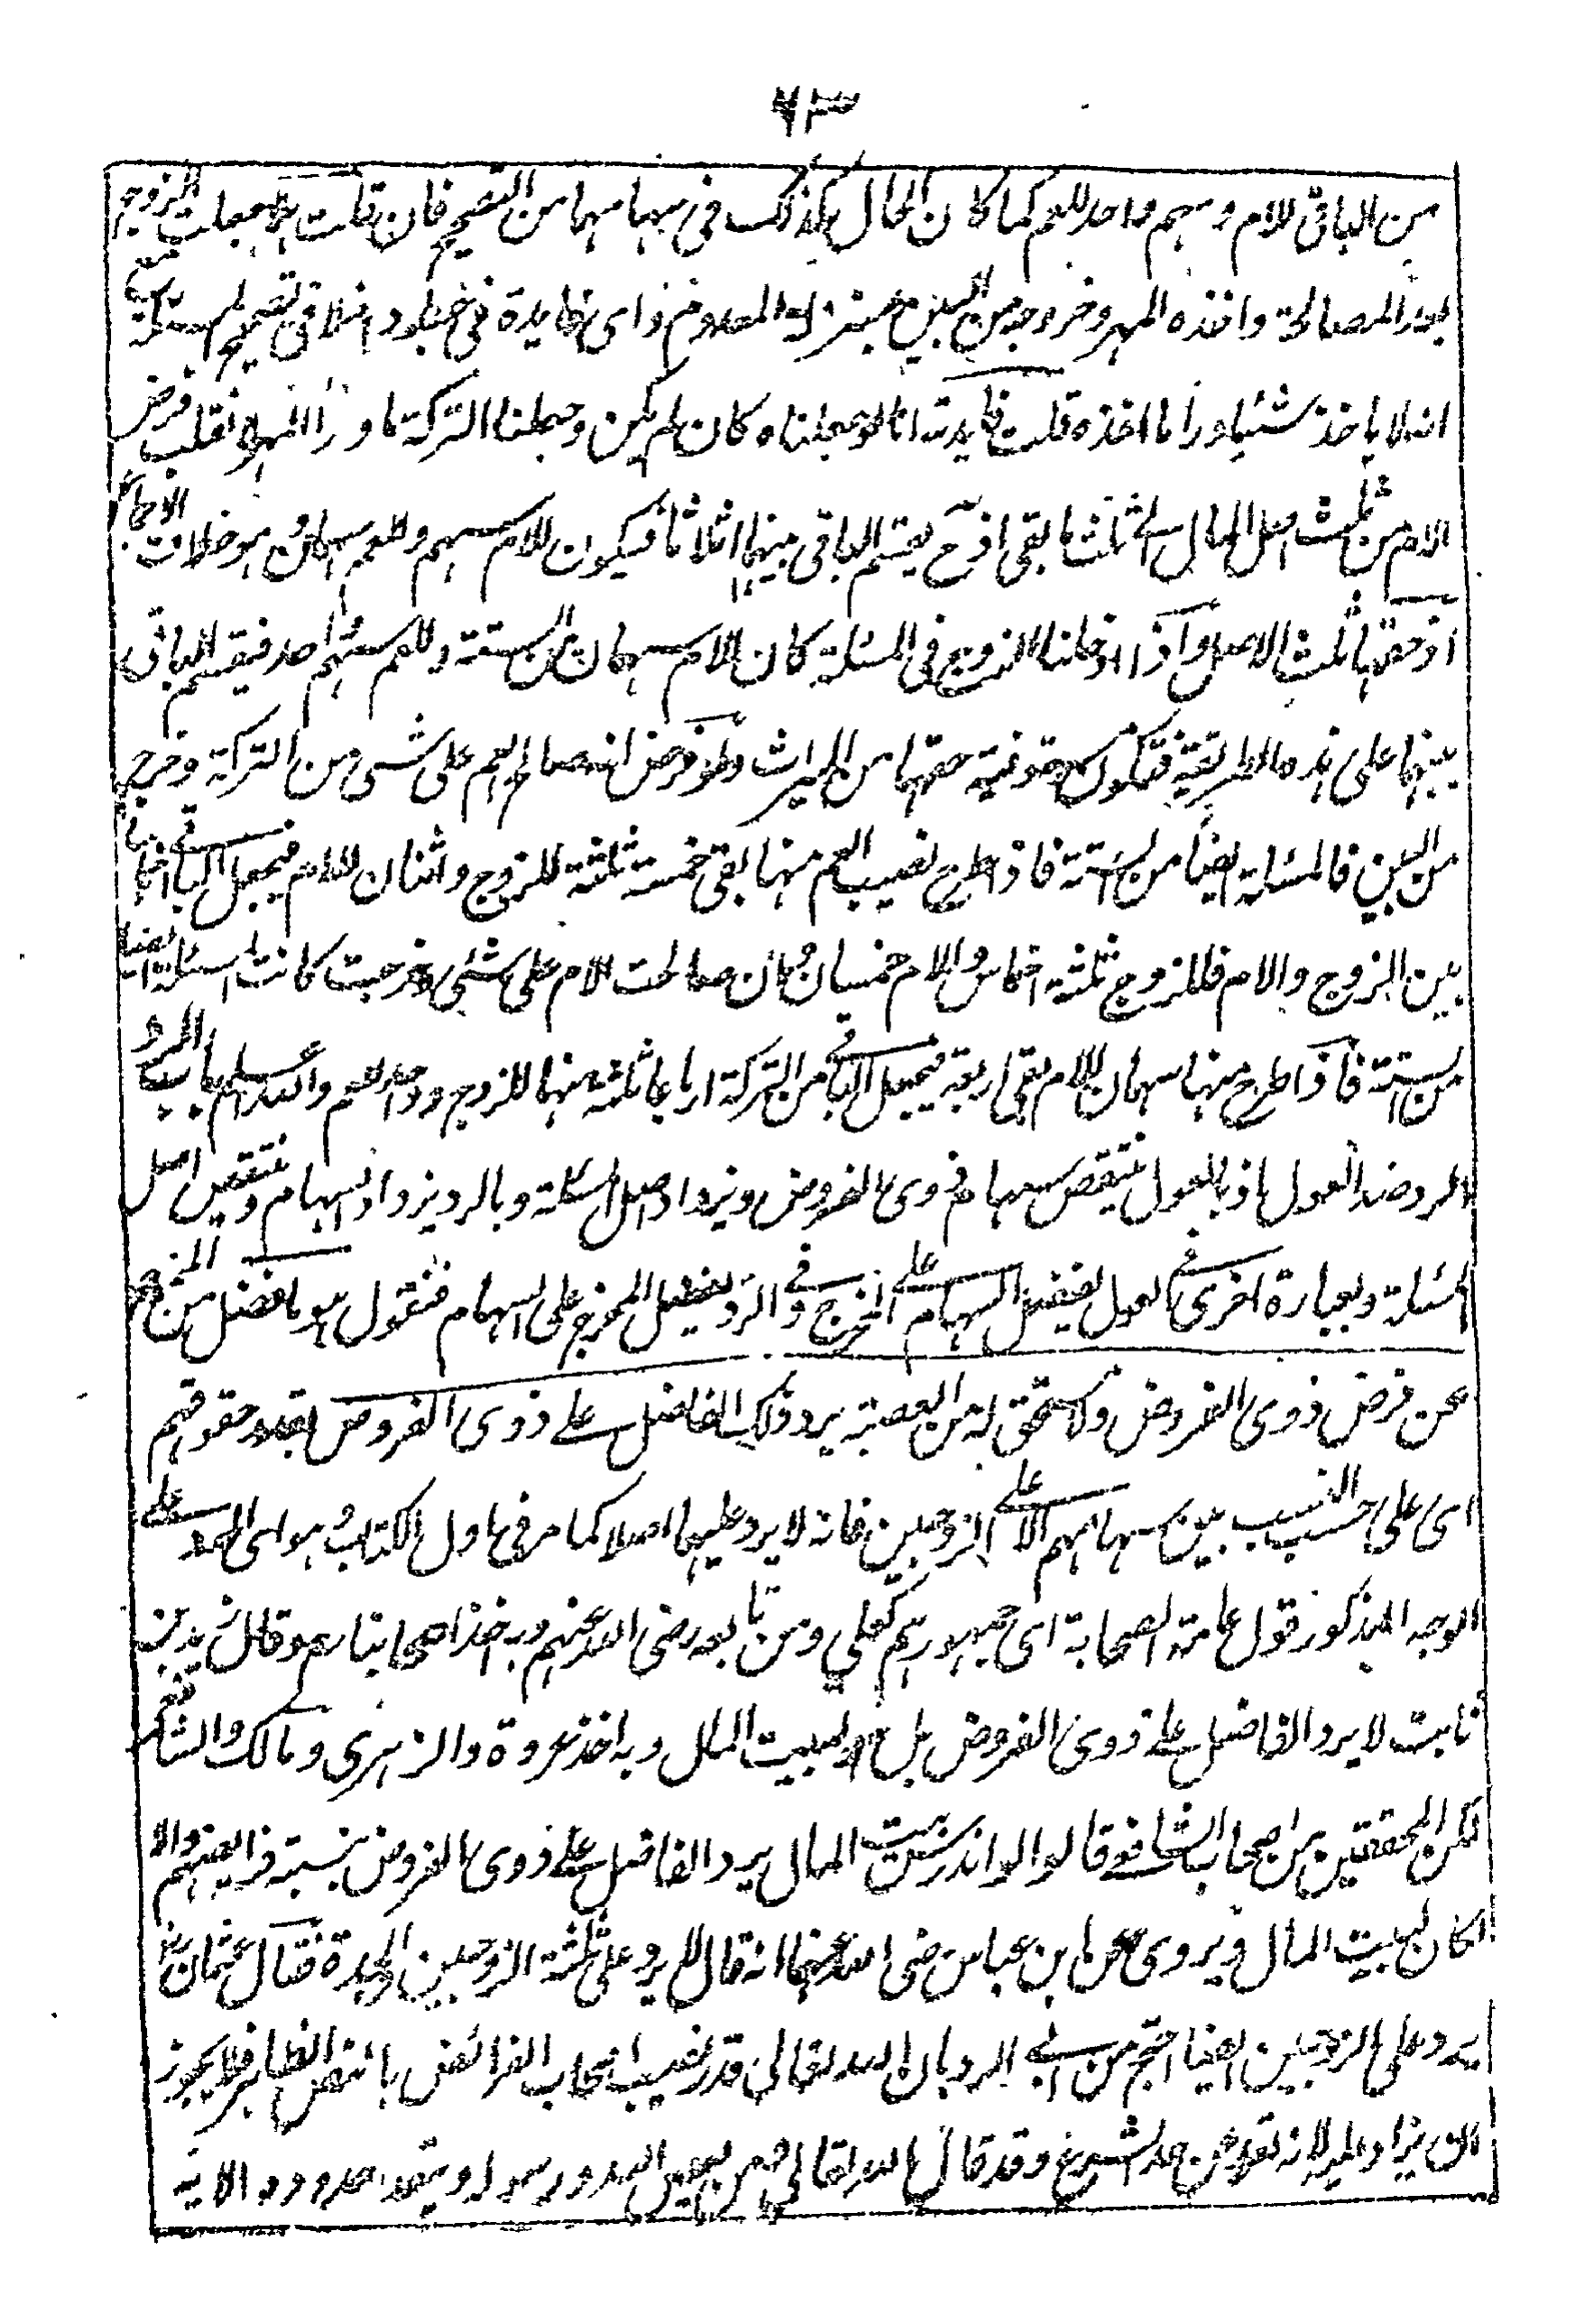 ٧٣
من الباقى للام وسهم واحد للعم كما كان الحال كذلك فى سهامهما من التصحيح فان قلت هلا جعلت الزوج
بعد المصالحة واخذه المهر وخروجه من البين بمنزلة المعدوم واى فايدة فى جعله داخلا فى تصحيح المسئلة مع
انه لا ياخذ شيئا وراء ما اخذه قلت فايدته انا لو جعلناه كان لم يكن وجعلنا التركة ما وراء المهر لانقلب فرض
الام من ثلث اصل المال الى ثلث ما بقى اذ ح يقسم الباقى بينهما اثلاثا فيكون للام سهم وللعم سهمان وهو خلاف الاجماع
اذ حقها ثلث الاصل واذا ادخلنا الزوج فى المسئلة كان للام سهمان من الستة وللعم سهم واحد فيقسم الباقى
بينهما على هذه الطريقة فتكون مستوفية حقها من الميراث ولو فرض انه صالح العم على شىء من التركة وخرج
من البين فالمسئلة ايضا من ستة فاذا طرح نصيب العم منها بقى خمسة ثلثة للزوج واثنان للام فيجعل الباقى اخماسا
بين الزوج والام فللزوج ثلثة اخماس وللام خمسان وان صالحت الام على شىء وخرجت كانت المسئلة ايضا
من ستة فاذا طرح منها سهمان للام بقى اربعة فيجعل الباقى من التركة ارباعا ثلثة منها للزوج وواحد للعم والله اعلم باب الرد
الرد ضد العول اذ بالعول ينتقص سهام ذوى الفروض ويزداد اصل المسئلة وبالرد يزداد السهام وينتقص اصل
المسئلة وبعبارة اخرى فى العول يفضل السهام على المخرج وفى الرد يفضل المخرج على السهام فنقول هو ما فضل من المخرج
عن فرض ذوى الفروض ولا مستحق له من العصبة يرد ذلك الفاضل على ذوى الفروض بقدر حقوقهم
اى على حسب النسب بين سهامهم الا على الزوجين فانه لا يرد عليهما اصلا كما مر فى اول الكتاب وهو اى الرد على
الوجه المذكور قول عامة الصحابة اى جمهورهم كعلي ومن تابعه رضى الله عنهم وبه اخذ اصحابنا رحم وقال زيد بن
ثابت لا يرد الفاضل على ذوى الفروض بل هو لبيت المال وبه اخذ عروة والزهرى ومالك والشافعى
لكن المحققين من اصحاب الشافعى قالوا اذا اندرس بيت المال يرد الفاضل على ذوى الفروض بنسبة فرايضهم والا
كان لبيت المال ويروى عن ابن عباس رضى الله عنهما انه قال لا يرد على ثلثة الزوجين والجدة فقال عثمان رض
يرد على الزوجين ايضا احتج من ابى الرد بان الله تعالى قدر نصيب اصحاب الفرائض بالنص الظاهر فلا يجوز
ان يزاد عليه لانه تعد عن حد الشرع وقد قال الله تعالى ومن يعص الله ورسوله ويتعد حدوده الاية